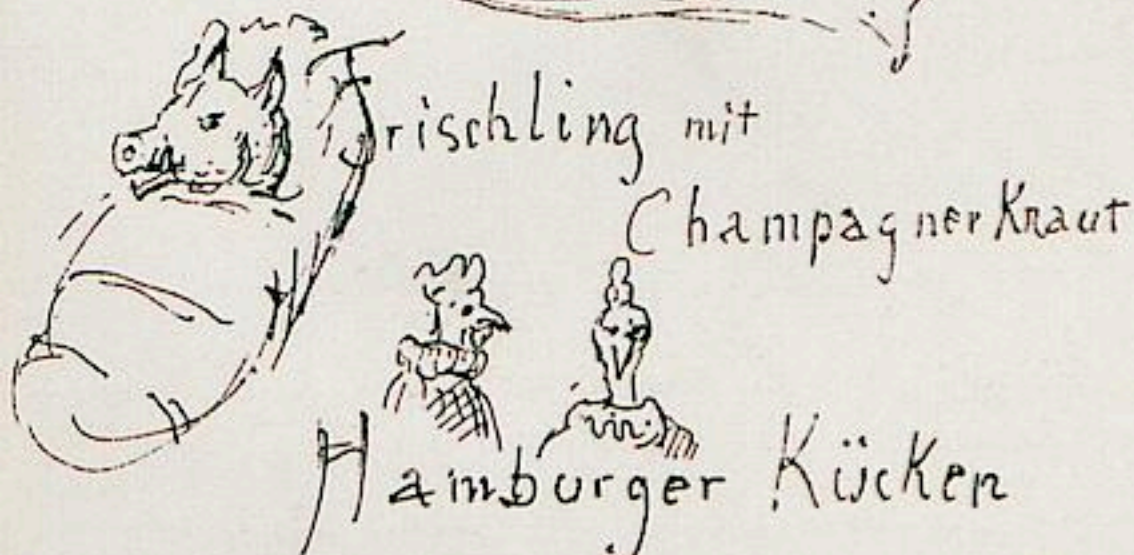 Frischling mit
Champagner Kraut
Hamburger Kücken